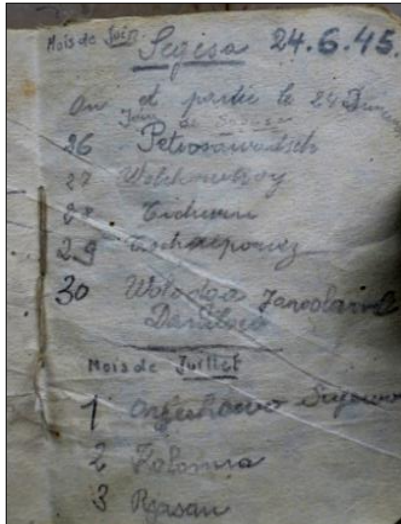 Mois de Juin. Segisa 24.6.45.
on et partie le 24 Dimanc
Juin de Segisa
26 Petrosawadsch
27 Wolchowstroy
28 Tichwin
29 Tschaepowez
30 Wologda Jaroslawl
Danilow
Mois de Juillet
1
2 Kolomna
3 Rjasan